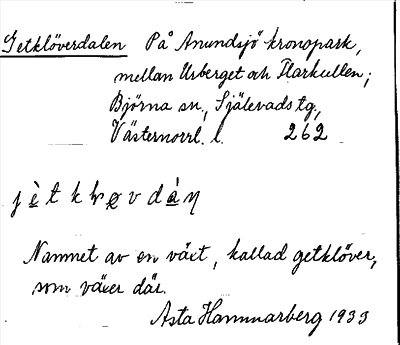 Getklöverdalen På Anundsjö kronopark,
mellan Urberget och Flarkullen;
Björna sn., Själevads tg,
Västernorrl. l. 262
Namnet av en växt, kallad getklöver,
som växer där.
Asta Hammarberg 1933